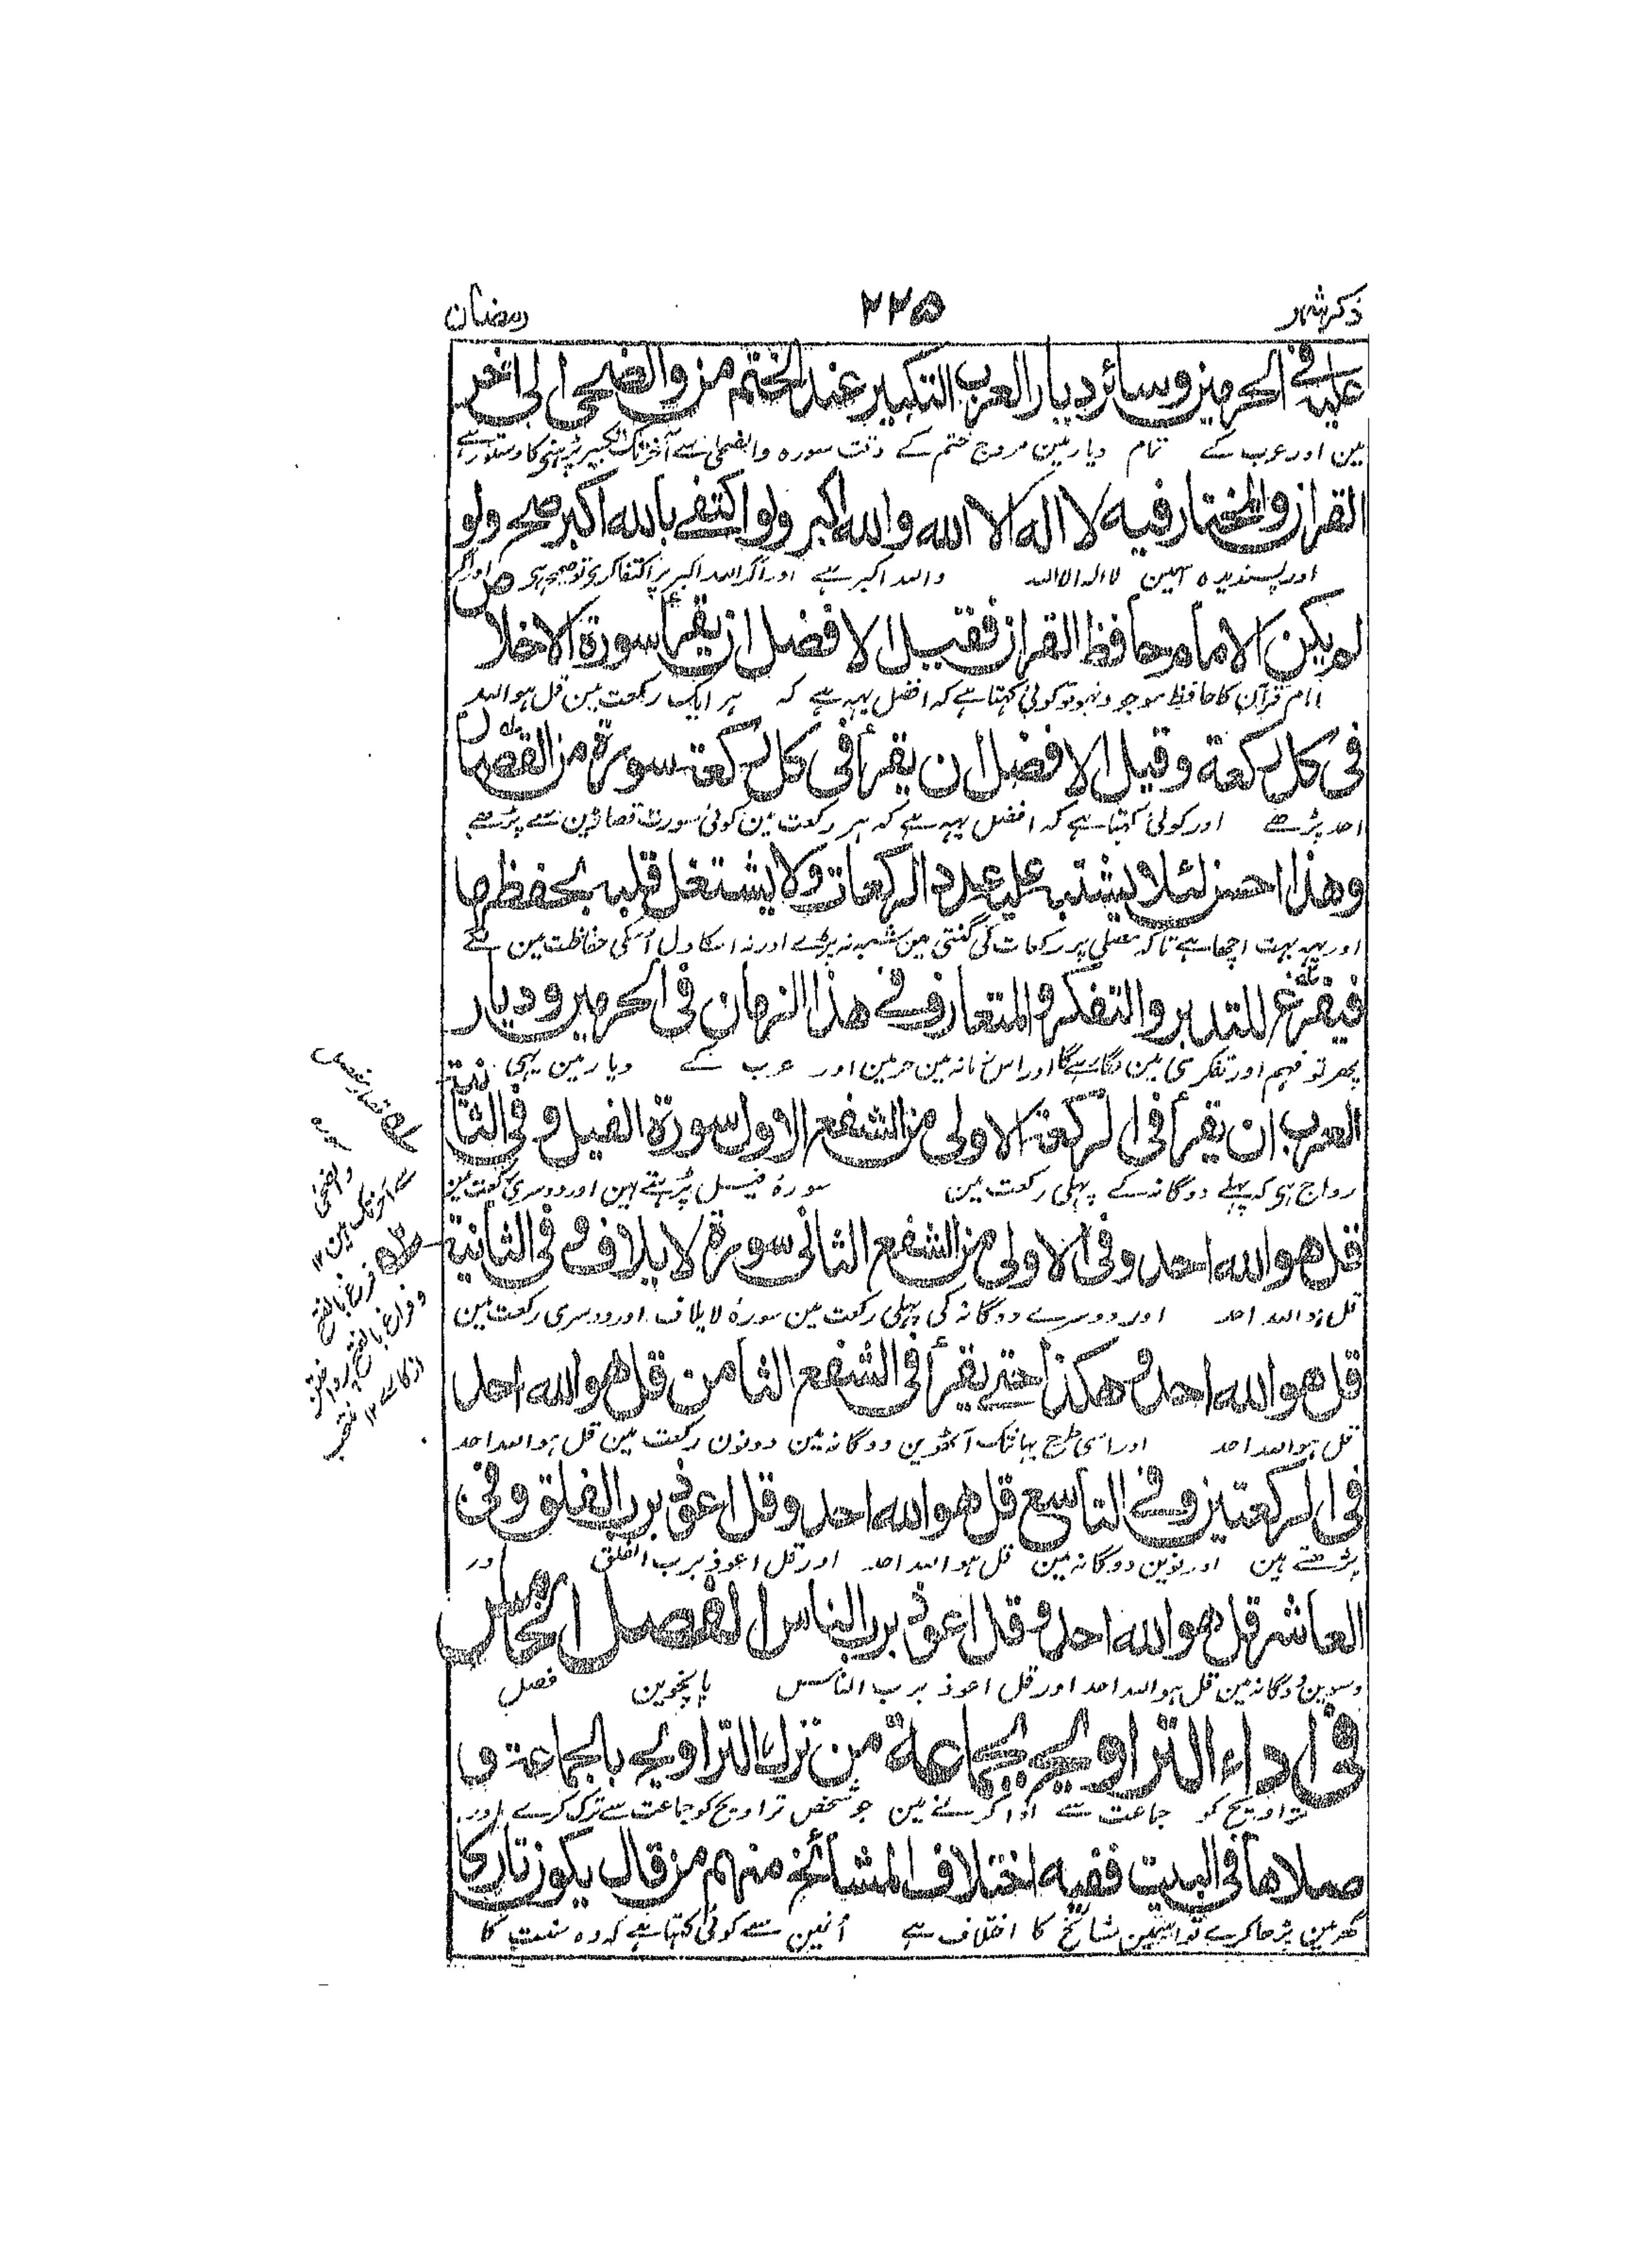 ذکر شہر ۲۲۵ رمضان
عليه في الحرمين وسائر ديار العرب التكبير عند الختم من والضحى الى اخر
مین اور عرب کے تمام دیار مین مروج ختم کے وقت سورہ والضحی سے آخر تک تکبیر پڑہنی کا دستور ہے
القران والمختار فيه لا اله الا الله والله اكبر ولو اكتفى بالله اكبر صح ولو
اور پسندیدہ لا الہ الا اللہ واللہ اکبر ہے اور اگر اللہ اکبر پر اکتفا کری تو صحیح ہی اور اگر
لم يكن الامام حافظ القران فقيل الافضل ان يقرأ سورة الاخلاص
امام قرآن کا حافظ موجود نہو تو کوئی کہتا ہے کہ افضل یہہ ہے کہ ہر ایک رکعت مین قل ہو اللہ
في كل ركعة وقيل الافضل ان يقرأ في كل ركعة سورة من القصار
احد پڑھے اور کوئی کہتا ہے کہ افضل یہہ ہے کہ ہر رکعت مین کوئی سورت قصار مین سے پڑھے
وهذا احسن لئلا يشتبه عليه عدد الركعات ولا يشتغل قلبه بحفظها
اور یہہ بہت اچھا ہے تاکہ مصلی پر رکعات کی گنتی مین شبہہ نہ پڑے اور نہ اسکا دل اُسکی حفاظت مین لگے
فيفرغ للتدبر والتفكر والمتعارف في هذا الزمان في الحرمين وديار
پھر تو فہم اور تفکر ہی مین لگا رہیگا اور اس زمانہ مین حرمین اور عرب کے دیار مین یہی
العرب ان يقرأ في الركعة الاولى من الشفع الاول سورة الفيل وفي الثانية
رواج ہی کہ پہلے دوگانہ کے پہلی رکعت مین سورۂ فیل پڑہتے ہین اور دوسری رکعت مین
قل هو الله احد وفي الاولى من الشفع الثانى سورة لايلاف وفي الثانية
قل ہو اللہ احد اور دوسرے دوگانہ کی پہلی رکعت مین سورۂ لایلاف اور دوسری رکعت مین
قل هو الله احد وهكذا حتى يقرأ في الشفع الثامن قل هو الله احد
قل ہو اللہ احد اور اسی طرح یہانتک آٹھوین دوگانہ مین دونون رکعت مین قل ہو اللہ احد
في الركعتين وفي التاسع قل هو الله احد وقل اعوذ برب الفلق وفي
پڑھتے ہین اور نوین دوگانہ مین قل ہو اللہ احد اور قل اعوذ برب الفلق اور
العاشر قل هو الله احد وقل اعوذ برب الناس الفصل الخامس
دسوین دوگانہ مین قل ہو اللہ احد اور قل اعوذ برب الناس پانچوین فصل
في اداء التراويح بجماعة من ترك التراويح بالجماعة و
تراویح کو جماعت سے ادا کرنے مین جو شخص تراویح کو جماعت سے ترک کرے اور
صلاها في البيت ففيه اختلاف المشائخ منهم من قال يكون تاركا
گھر مین پڑھا کرے تو اسمین مشائخ کا اختلاف ہے اُنمین سے کوئی کہتا ہے کہ وہ سنت کا
قصار مفصل
سورہ
والضحی
سے آخر تک ہین ۱۲
فرغ بالفتح
و فراغ بالفتح پرداختن
از کاری ۱۲ منتخب